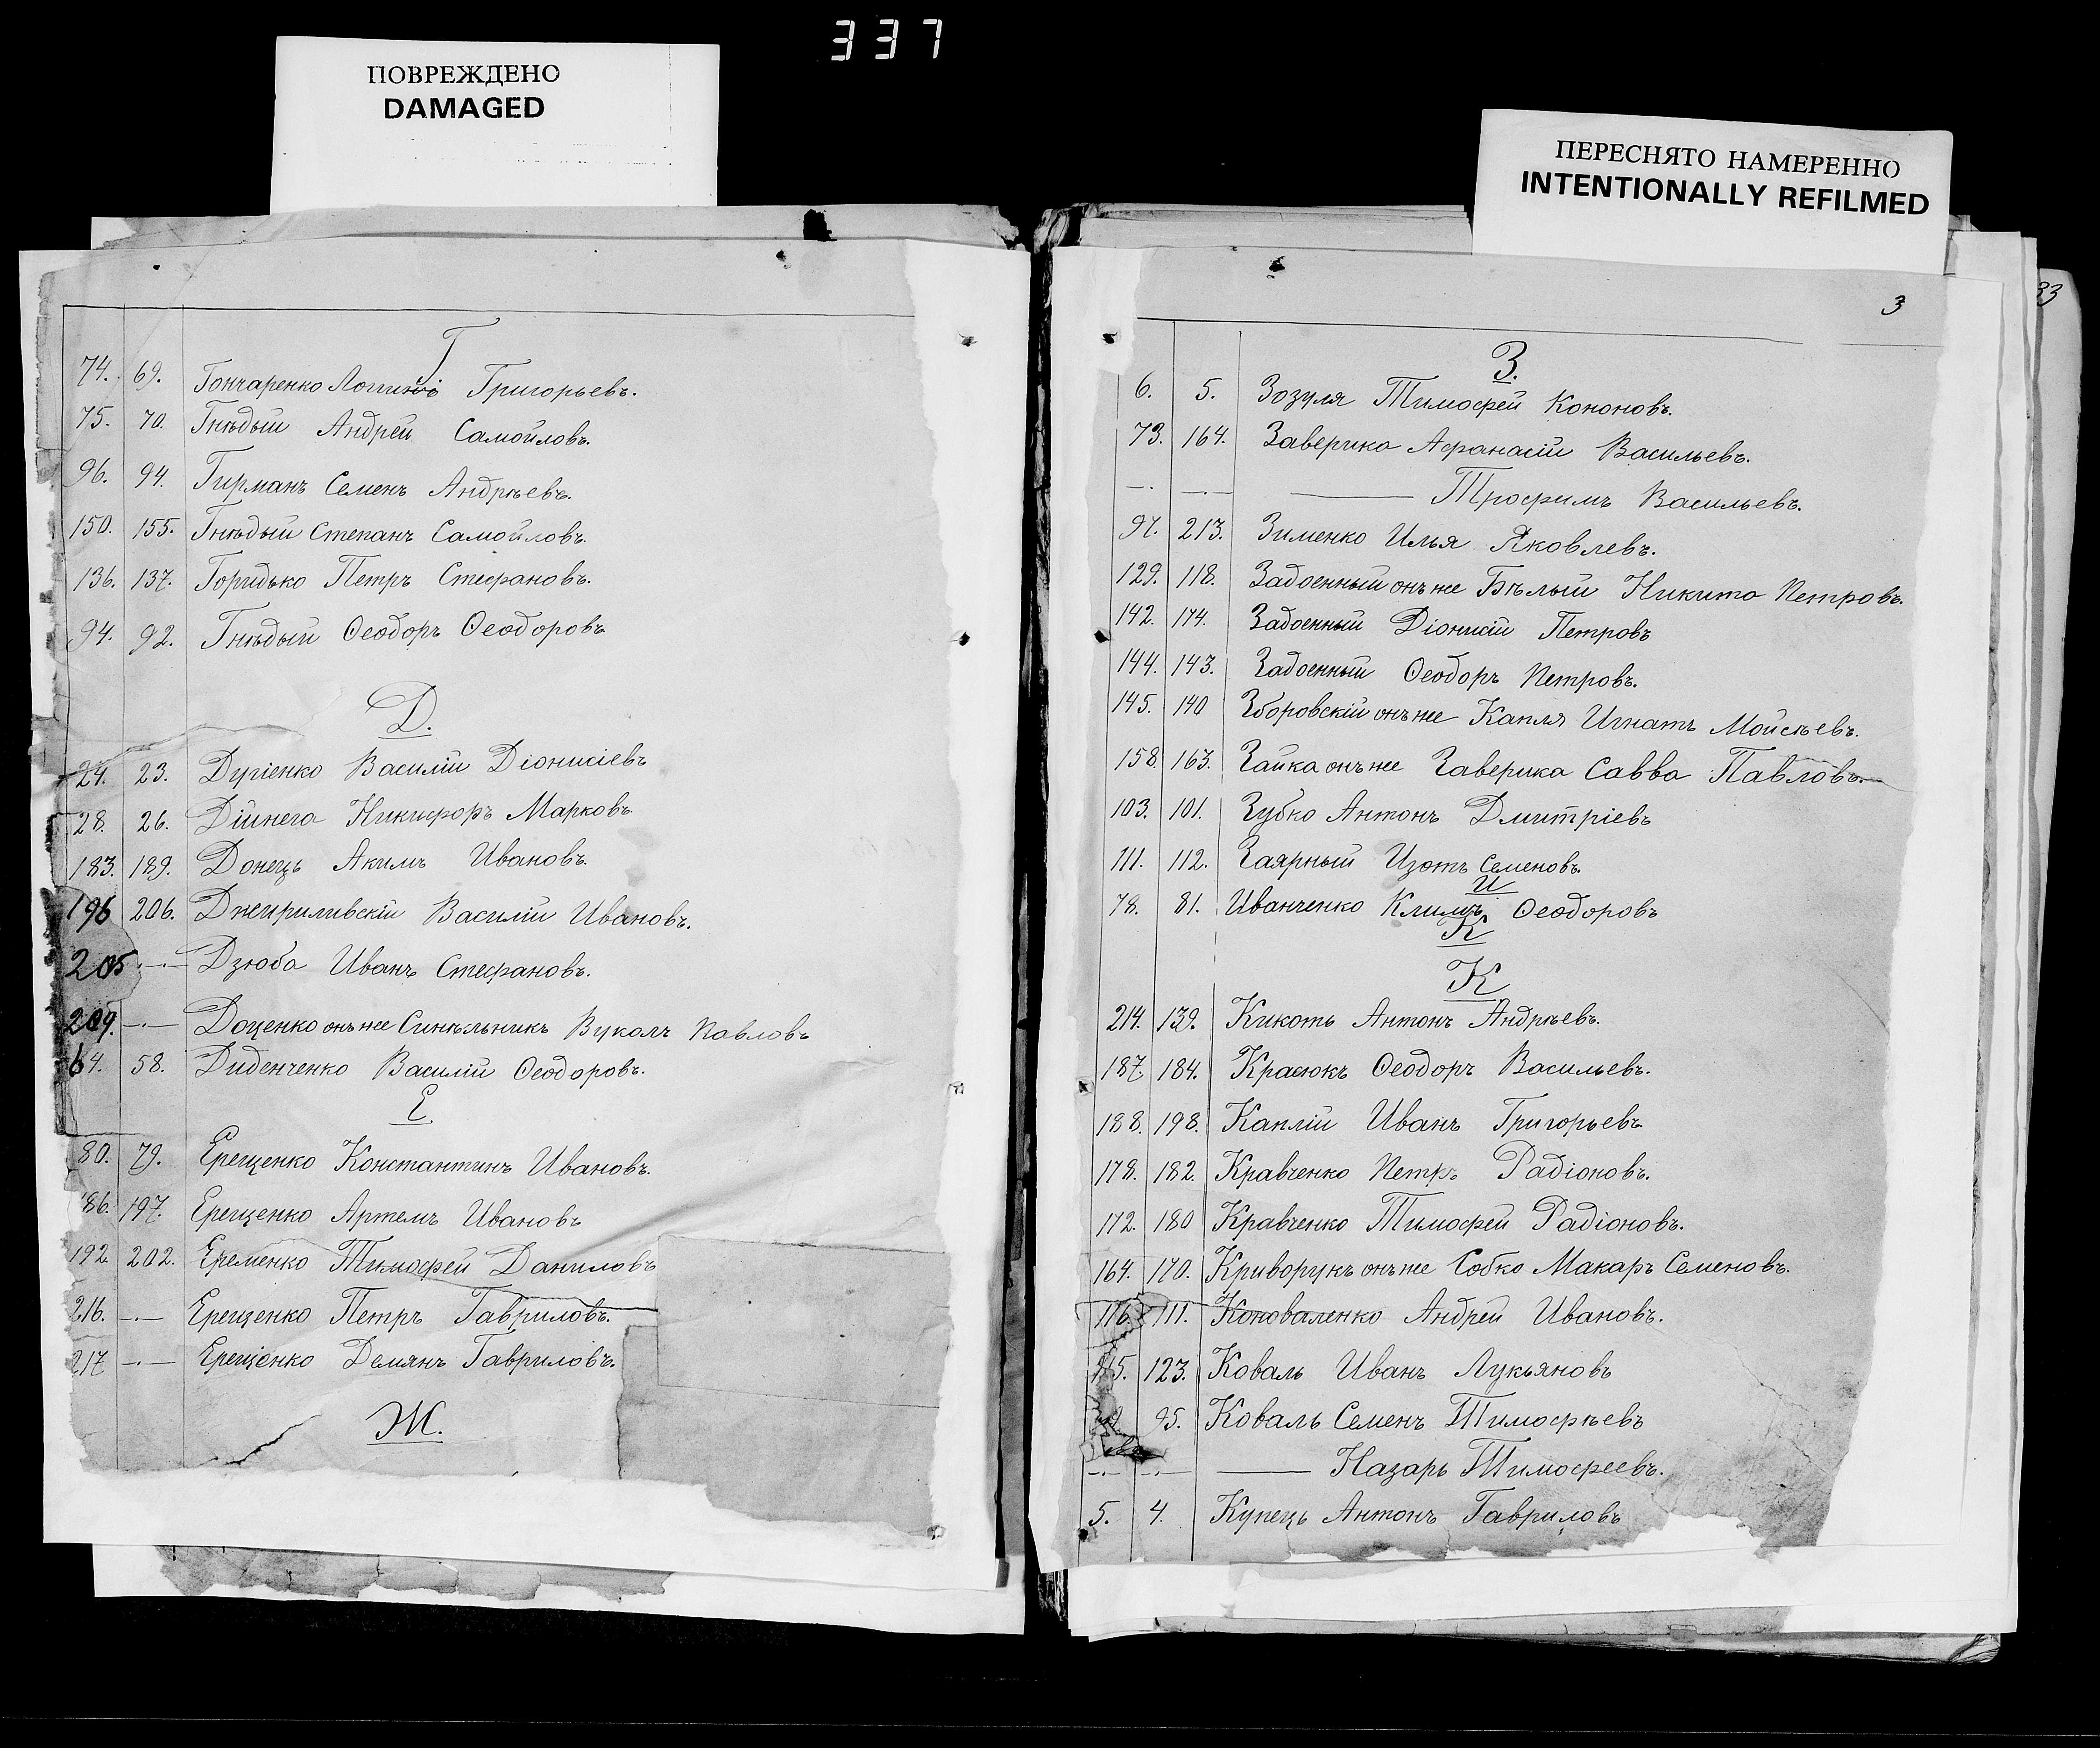 337
ПОВРЕЖДЕНО
DAMAGED
ПЕРЕСНЯТО НАМЕРЕННО
INTENTIONALLY REFILMED
Г
74. 69. Гончаренко Логинъ Григорьевъ.
75. 70. Гнѣдый Андрей Самойловъ.
96. 94. Гирманъ Семенъ Андрѣевъ.
150. 155. Гнѣдый Степанъ Самойловъ.
136. 137. Горидько Петръ Стефановъ.
94. 92. Гнѣдый Ѳеодоръ Ѳеодоровъ
Д.
24. 23. Дугіенко Василій Діонисіевъ
28. 26. Дійнега Никифоръ Марковъ
183. 189. Донецъ Акимъ Ивановъ.
196 206. Джеириливскій Василій Ивановъ.
205 —·— Дзюба Иванъ Стефановъ.
209. —·— Доценко онъ же Синѣльникъ Вуколъ Павловъ
64. 58. Диденченко Василій Ѳеодоровъ.
Е.
80. 79. Ерещенко Константинъ Ивановъ.
186. 197. Ерещенко Артемъ Ивановъ
192. 202. Еременко Тимофей Даниловъ
216. —·— Ерещенко Петръ Гавриловъ.
217 —·— Ерещенко Демянъ Гавриловъ.
Ж.
33
3
З.
6. 5. Зозуля Тимофей Кононовъ.
73. 164. Заверика Афанасій Васильевъ.
—·— —·— ——— Трофимъ Васильевъ.
97. 213. Зименко Илья Яковлевъ.
129. 118. Задоенный онъ же Бѣлый Никита Петровъ.
142. 174. Задоенный Діонисій Петровъ
144. 143. Задоенный Ѳеодоръ Петровъ.
145. 140 Зборовскій онъ же Капля Игнатъ Мойсѣевъ.
158. 163. Зайка онъ же Заверика Савва Павловъ.
103. 101. Зубко Антонъ Дмитріевъ
111. 112. Заярный Изотъ Семеновъ.
И
78. 81. Иванченко Климъ Ѳеодоровъ
К
К
214. 139. Кикоть Антонъ Андрѣевъ.
187. 184. Красюкъ Ѳеодоръ Васильевъ.
188. 198. Каплій Иванъ Григорьевъ
178. 182. Кравченко Петръ Радіоновъ.
172. 180 Кравченко Тимофей Радіоновъ.
164. 170. Криворукъ онъ же Собко Макаръ Семеновъ.
116 111. Коноваленко Андрей Ивановъ.
115. 123. Коваль Иванъ Лукьяновъ
95. Коваль Семенъ Тимофѣевъ
—·— —·— ——— Назаръ Тимофеевъ.
5. 4. Купецъ Антонъ Гавриловъ